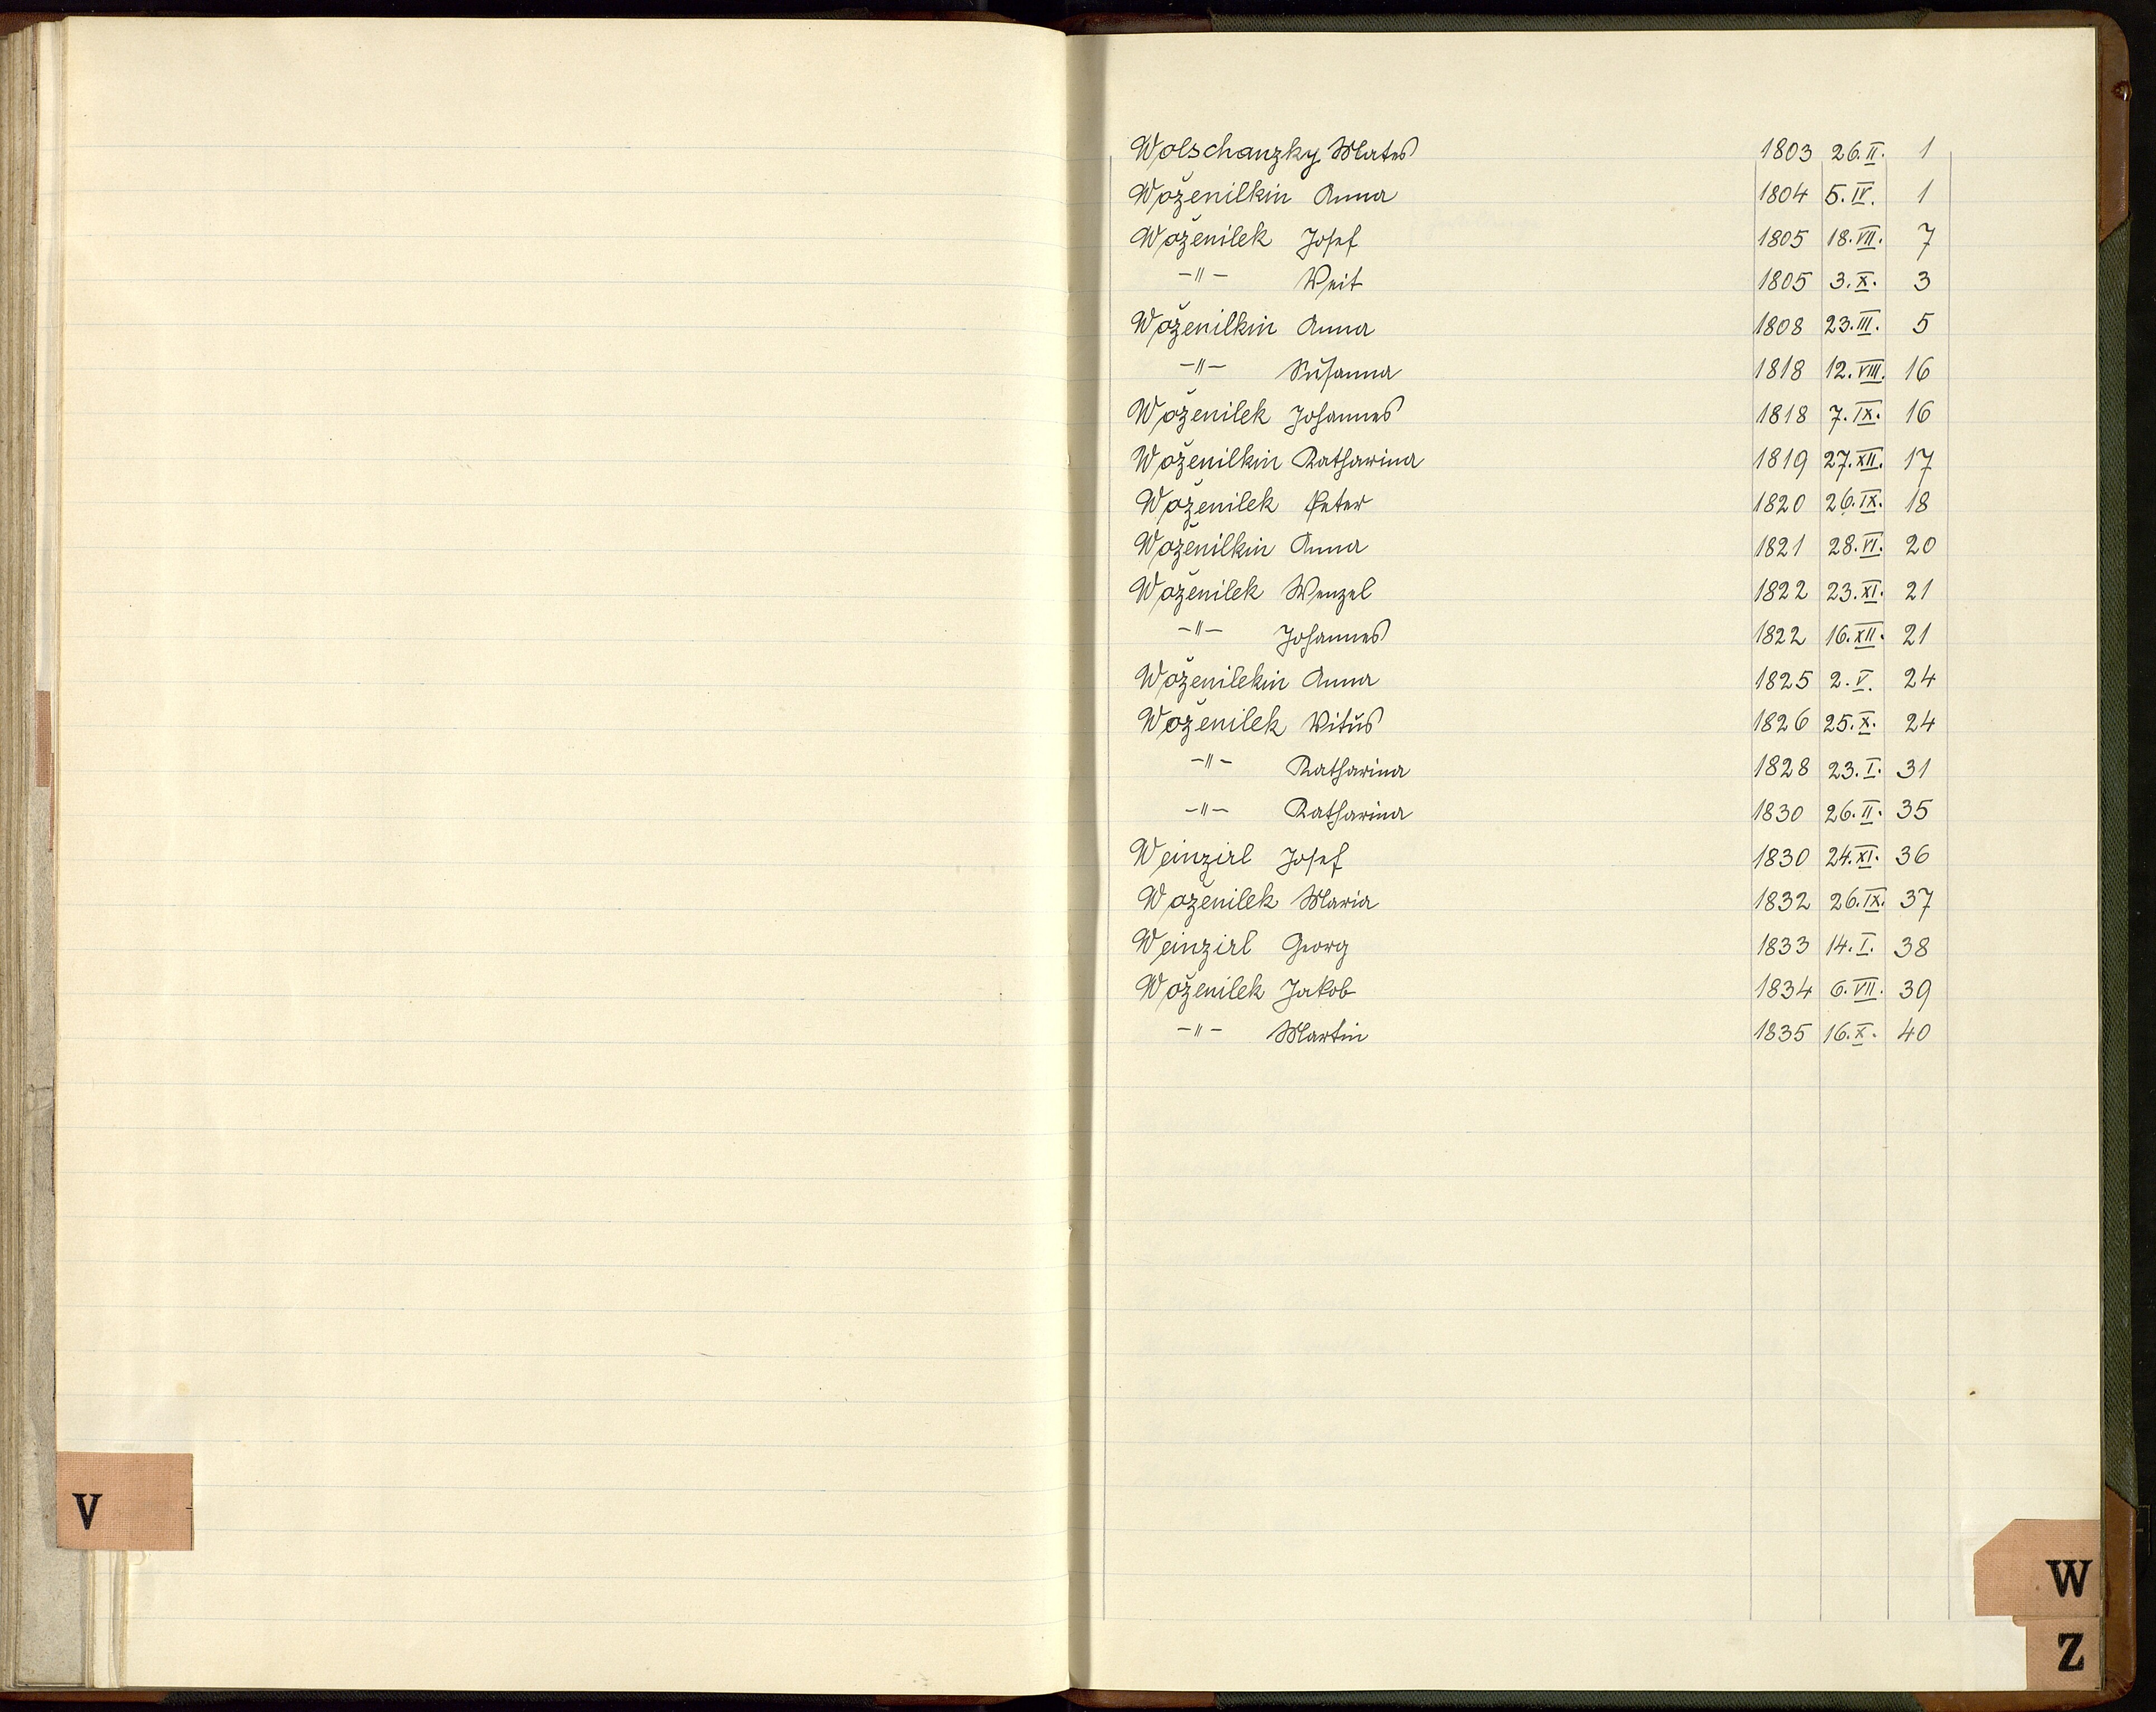 Wolschanzky Mates 1803 26.II. 1
Woženilkin Anna 1804 5.IV. 1
Woženilek Josef 1805 18.VII. 7
-"- Veit 1805 3.X. 3
Woženilkin Anna 1808 23.III. 5
-"- Susanna 1818 12.VIII. 16
Woženilek Johannes 1818 7.IX. 16
Woženilkin Katharina 1819 27.XII. 17
Woženilek Peter 1820 26.IX. 18
Woženilkin Anna 1821 28.VI. 20
Woženilek Wenzel 1822 23.XI. 21
-"- Johannes 1822 16.XII. 21
Woženilekin Anna 1825 2.V. 24
Woženilek Vitus 1826 25.X. 24
-"- Katharina 1828 23.I. 31
-"- Katharina 1830 26.II. 35
Weinzirl Josef 1830 24.XI. 36
Woženilek Maria 1832 26.IX. 37
Weinzirl Georg 1833 14.I. 38
Woženilek Jakob 1834 6.VII. 39
-"- Martin 1835 16.X. 40
V
W
Z